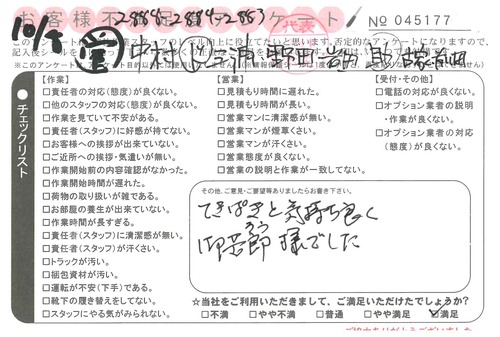 お客様不 ケート!
2884-2884-2883
代表
№ 045177
10/8
※このアンケートは、
【作業】
□責任者の対応(態度)が良くない。
□他のスタッフの対応(態度)が良くない。
□作業を見ていて不安がある。
□責任者(スタッフ)に好感が持てない。
□お客様への挨拶が出来ていない。
□ご近所への挨拶・気遣いが無い。
□作業開始前の内容確認がなかった。
□作業開始時間が遅れた。
□荷物の取り扱いが雑である。
□お部屋の養生が出来ていない。
□作業時間が長すぎる。
□責任者(スタッフ)に清潔感が無い。
□責任者(スタッフ)が汗くさい。
□トラックが汚い。
□梱包資材が汚い。
□運転が不安(下手)である。
□靴下の履き替えをしてない。
□スタッフにやる気がみられない。
【営業】
□見積もり時間に遅れた。
□見積もり時間が長い。
□営業マンに清潔感が無い。
□営業マンが煙草くさい。
□営業マンが汗くさい。
□営業態度が良くない。
□営業の説明と作業が一致してない。
【受付・その他】
□電話の対応が良くない。
□オプション業者の説明・作業が良くない。
□オプション業者の対応(態度)が良くない。
●チェックリスト
その他、ご意見・ご要望等ありましたらお書き下さい。
てきぱきと気持ち良く
御苦労様でした
☆当社をご利用いただきまして、ご満足いただけたでしょうか?
□不満 □やや不満 □普通 □やや満足 ☑満足
ご協力ありがとうございました